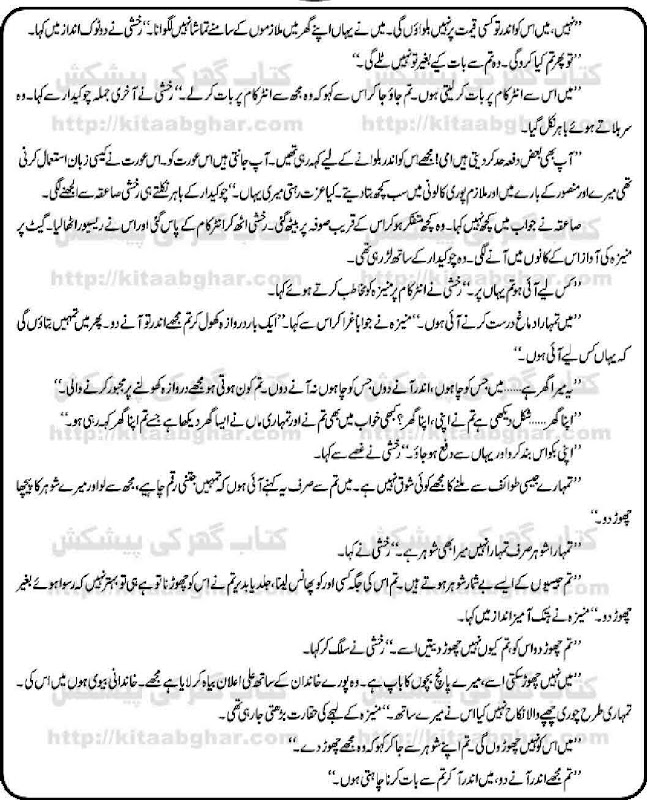 "نہیں، میں اس کو اندر تو کسی قیمت پر نہیں بلواؤں گی۔ میں نے یہاں اپنے گھر میں ملازموں کے سامنے تماشا نہیں لگوانا۔" رخشی نے دو ٹوک انداز میں کہا۔
"تو پھر تم کیا کرو گی۔ وہ تم سے بات کیے بغیر تو نہیں ٹلے گی۔"
کتاب گھر کی پیشکش کتاب گھر کی پیشکش
"میں اس سے انٹر کام پر بات کر لیتی ہوں۔ تم جاؤ جا کر اس سے کہو کہ وہ مجھ سے انٹر کام پر بات کر لے۔" رخشی نے آخری جملہ چوکیدار سے کہا۔ وہ
http://kitaabghar.com http://kitaabghar.com
سر ہلاتے ہوئے باہر نکل گیا۔
"آپ بھی بعض دفعہ حد کر دیتی ہیں امی! مجھے اس کو اندر بلوانے کے لیے کہہ رہی تھیں۔ آپ جانتی ہیں اس عورت کو۔ اس عورت نے کیسی زبان استعمال کرنی
تھی میرے اور منصور کے بارے میں اور ملازم پوری کالونی میں سب کچھ بتا دیتے۔ کیا عزت رہتی میری یہاں۔" چوکیدار کے باہر نکلتے ہی رخشی صاعقہ سے الجھنے لگی۔
صاعقہ نے جواب میں کچھ نہیں کہا۔ وہ کچھ متفکر ہو کر اس کے قریب صوفہ پر بیٹھ گئی۔ رخشی اٹھ کر انٹر کام کے پاس گئی اور اس نے ریسیور اٹھا لیا۔ گیٹ پر
کتاب گھر کی پیشکش کتاب گھر کی پیشکش
منیزہ کی آواز اس کے کانوں میں آنے لگی۔ وہ چوکیدار کے ساتھ لڑ رہی تھی۔
http://kitaabghar.com http://kitaabghar.com
"کس لیے آئی ہو تم یہاں پر۔" رخشی نے انٹر کام پر منیزہ کو مخاطب کرتے ہوئے کہا۔
"میں تمہارا دماغ درست کرنے آئی ہوں۔" منیزہ نے جواباً غرا کر اس سے کہا۔ "ایک بار دروازہ کھول کر تم مجھے اندر تو آنے دو۔ پھر میں تمہیں بتاؤں گی
کہ یہاں کس لیے آئی ہوں۔"
"یہ میرا گھر ہے...... میں جس کو چاہوں، اندر آنے دوں جس کو چاہوں نہ آنے دوں۔ تم کون ہوتی ہو مجھے دروازہ کھولنے پر مجبور کرنے والی۔"
کتاب گھر کی پیشکش کتاب گھر کی پیشکش
"اپنا گھر...... شکل دیکھی ہے تم نے اپنی، اپنا گھر؟ کبھی خواب میں بھی تم نے اور تمہاری ماں نے ایسا گھر دیکھا ہے جسے تم اپنا گھر کہہ رہی ہو۔"
http://kitaabghar.com http://kitaabghar.com
اپنی بکواس بند کرو اور یہاں سے دفع ہو جاؤ۔" رخشی نے غصے سے کہا۔
"تمہارے جیسی طوائف سے ملنے کا مجھے کوئی شوق نہیں ہے۔ میں تم سے صرف یہ کہنے آئی ہوں کہ تمہیں جتنی رقم چاہیے، مجھ سے لو اور میرے شوہر کا پیچھا
چھوڑ دو۔"
کتاب گھر کی پیشکش کتاب گھر کی پیشکش
"تمہارا شوہر صرف تمہارا نہیں میرا بھی شوہر ہے۔" رخشی نے کہا۔
"تم جیسیوں کے ایسے بے شمار شوہر ہوتے ہیں۔ تم اس کی جگہ کسی اور کو پھانس لینا، جلد یا بدیر تم نے اس کو چھوڑنا تو ہے ہی تو بہتر نہیں کہ رسوا ہوئے بغیر
http://kitaabghar.com http://kitaabghar.com
چھوڑ دو۔" منیزہ نے ہتک آمیز انداز میں کہا۔
"تم چھوڑ دو اس کو تم کیوں نہیں چھوڑ دیتیں اسے۔" رخشی نے سلگ کر کہا۔
"میں نہیں چھوڑ سکتی اسے، میرے پانچ بچوں کا باپ ہے۔ وہ پورے خاندان کے ساتھ علی اعلان بیاہ کر لایا ہے مجھے۔ خاندانی بیوی ہوں میں اس کی۔
کتاب گھر کی پیشکش کتاب گھر کی پیشکش
تمہاری طرح چوری چھپے والا نکاح نہیں کیا اس نے میرے ساتھ۔" منیزہ کے لہجے کی حقارت بڑھتی جا رہی تھی۔
http://kitaabghar.com http://kitaabghar.com
"میں اس کو نہیں چھوڑوں گی۔ تم اپنے شوہر سے جا کر کہو کہ وہ مجھے چھوڑ دے۔"
"تم مجھے اندر آنے دو، میں اندر آ کر تم سے بات کرنا چاہتی ہوں۔"